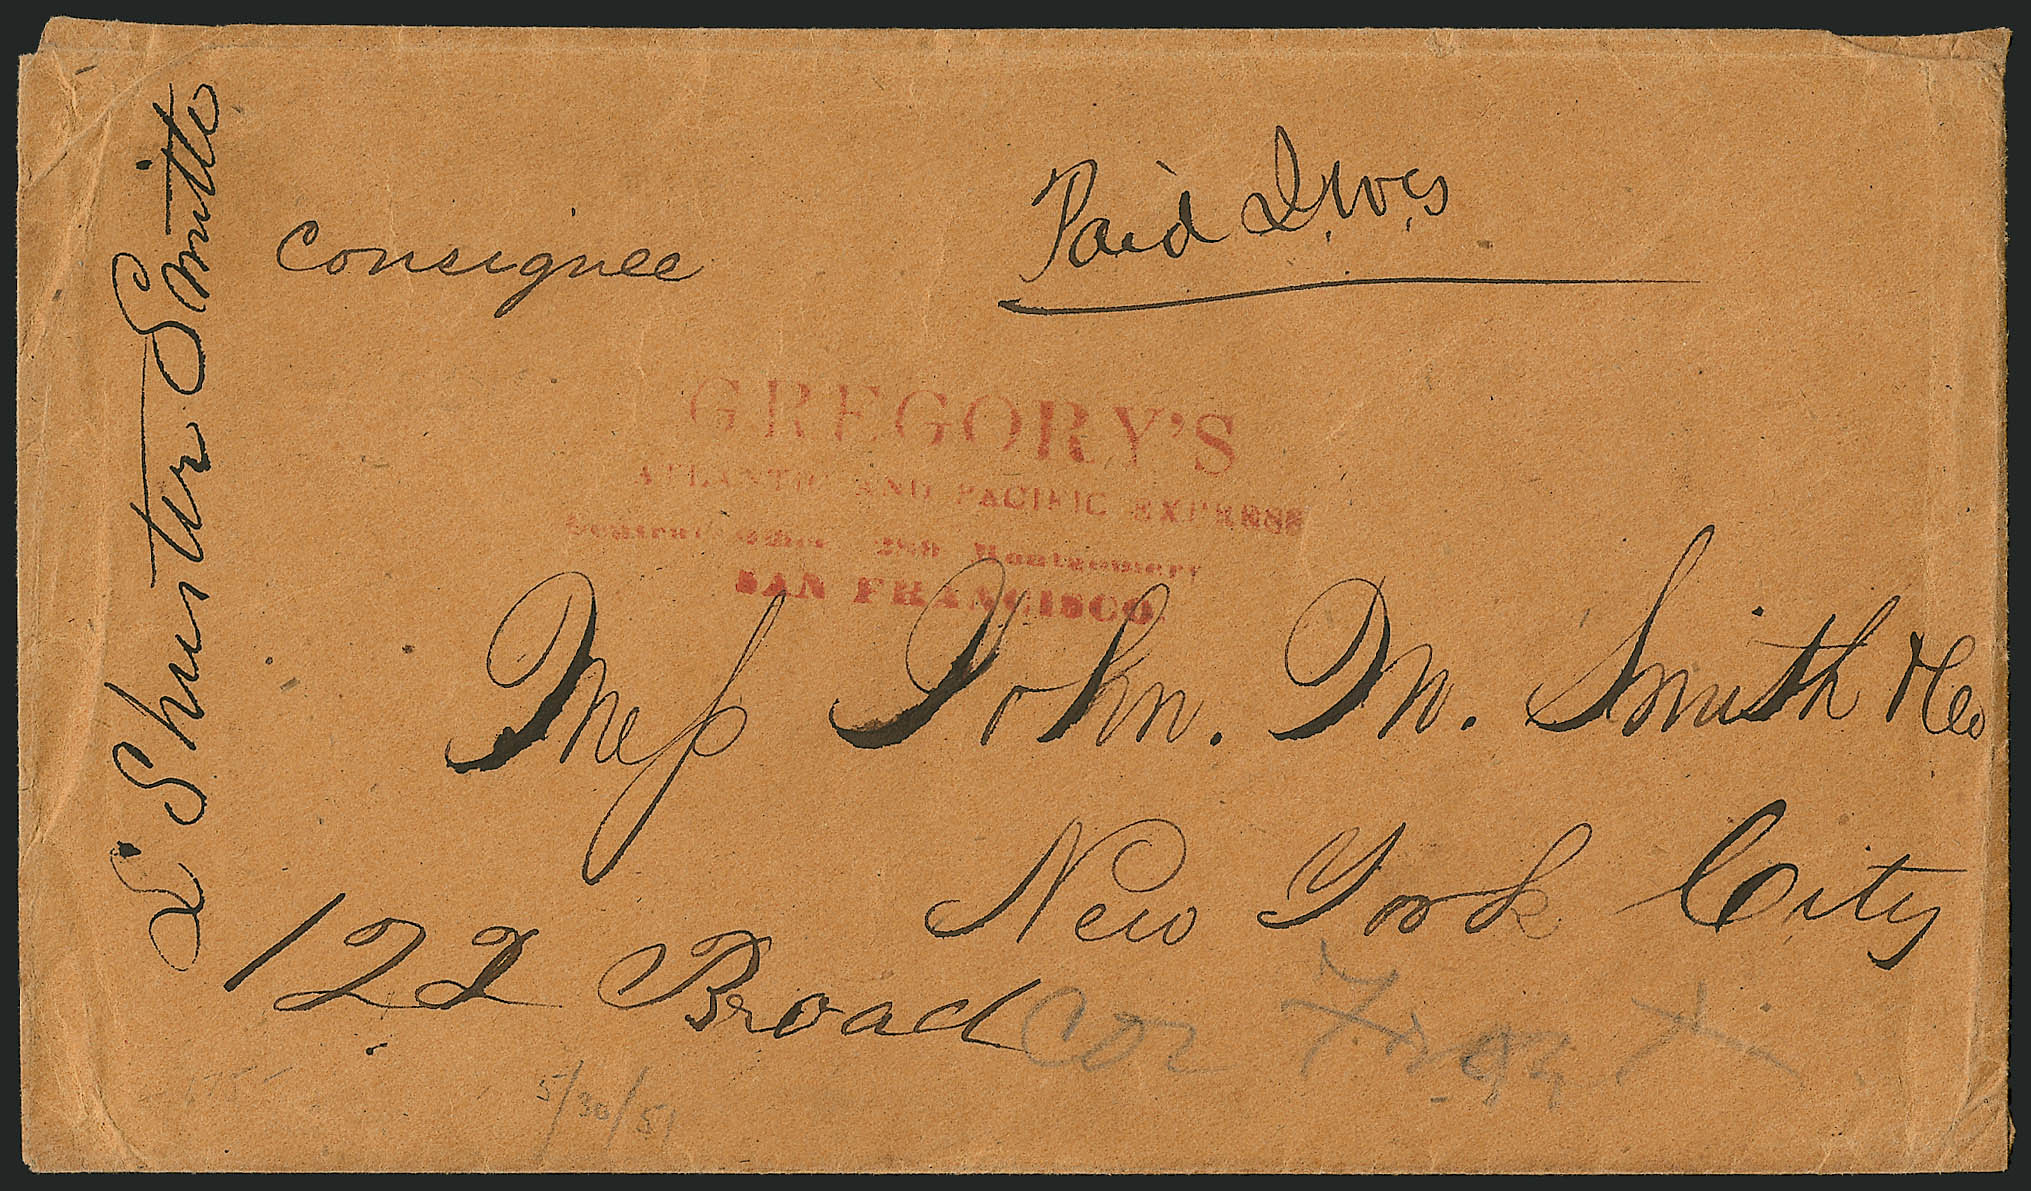 S Shuster Smith
Consignee
Paid
GREGORY'S
ATLANTIC AND PACIFIC EXPRESS
Central Office 280 Montgomery
SAN FRANCISCO
Mess John. M. Smith & Co
New York City
122 Broad Cor
5/30/51